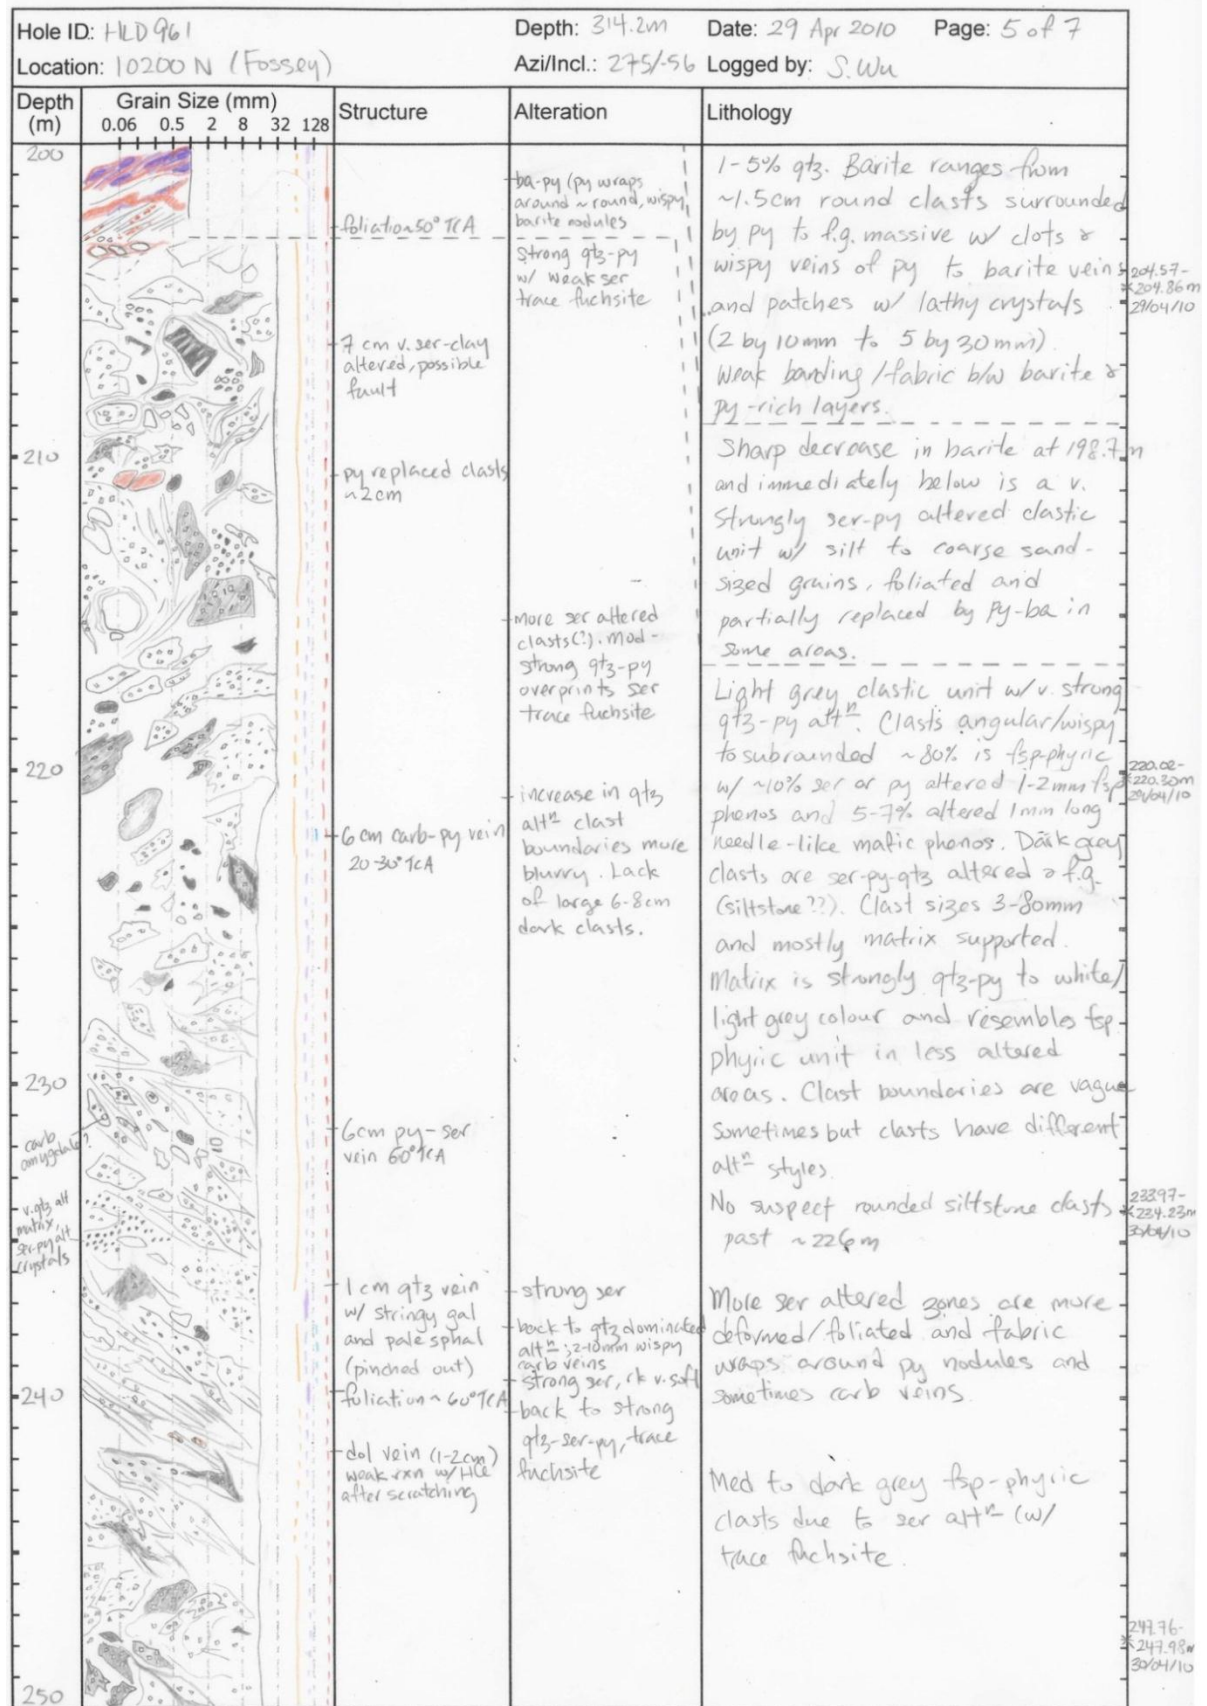 Hole ID: HLD961
Depth: 314.2m
Date: 29 Apr 2010
Page: 5 of 7
Location: 10200 N (Fossey)
Azi/Incl.: 275/-56
Logged by: S. Wu
Depth (m)
Grain Size (mm)
0.06 0.5 2 8 32 128
Structure
Alteration
Lithology
200
210
220
230
240
250
carb
amygdale?
v. qtz alt
matrix,
ser-py alt
crystals
foliation ~50° TCA
7 cm v. ser-clay
altered, possible
fault
py replaced clasts
~2cm
6 cm carb-py vein
20-30° TCA
6cm py-ser
vein 60° TCA
1 cm qtz vein
w/ stringy gal
and pale sphal
(pinched out)
foliation ~ 60° TCA
dol vein (1-2cm)
weak rxn w/ HCl
after scratching
ba-py (py wraps
around ~ round, wispy
barite nodules
Strong qtz-py
w/ weak ser
trace fuchsite
More ser altered
clasts(?). Mod-
strong qtz-py
overprints ser
trace fuchsite
increase in qtz
altⁿ clast
boundaries more
blurry. Lack
of large 6-8cm
dark clasts.
strong ser
back to qtz dominated
altⁿ; 2-10mm wispy
carb veins
strong ser, rk v. soft
back to strong
qtz-ser-py, trace
fuchsite
1-5% qtz. Barite ranges from
~1.5cm round clasts surrounded
by py to f.g. massive w/ clots &
wispy veins of py to barite veins
and patches w/ lathy crystals
(2 by 10mm to 5 by 30mm).
Weak banding/fabric b/w barite &
py-rich layers.
Sharp decrease in barite at 198.7m
and immediately below is a v.
strongly ser-py altered clastic
unit w/ silt to coarse sand-
sized grains, foliated and
partially replaced by py-ba in
some areas.
Light grey clastic unit w/ v. strong
qtz-py altⁿ. Clasts angular/wispy
to subrounded ~80% is fsp-phyric
w/ ~10% ser or py altered 1-2mm fsp
phenos and 5-7% altered 1mm long
needle-like mafic phenos. Dark grey
clasts are ser-py-qtz altered & f.g.
(siltstone??). Clast sizes 3-80mm
and mostly matrix supported.
Matrix is strongly qtz-py to white/
light grey colour and resembles fsp
phyric unit in less altered
areas. Clast boundaries are vague
sometimes but clasts have different
altⁿ styles.
No suspect rounded siltstone clasts
past ~226m
More ser altered zones are more
deformed/foliated and fabric
wraps around py nodules and
sometimes carb veins.
Med to dark grey fsp-phyric
clasts due to ser altⁿ (w/
trace fuchsite.
204.57-
204.86m
29/04/10
220.02-
220.30m
29/04/10
233.97-
234.23m
30/04/10
247.76-
247.98m
30/04/10